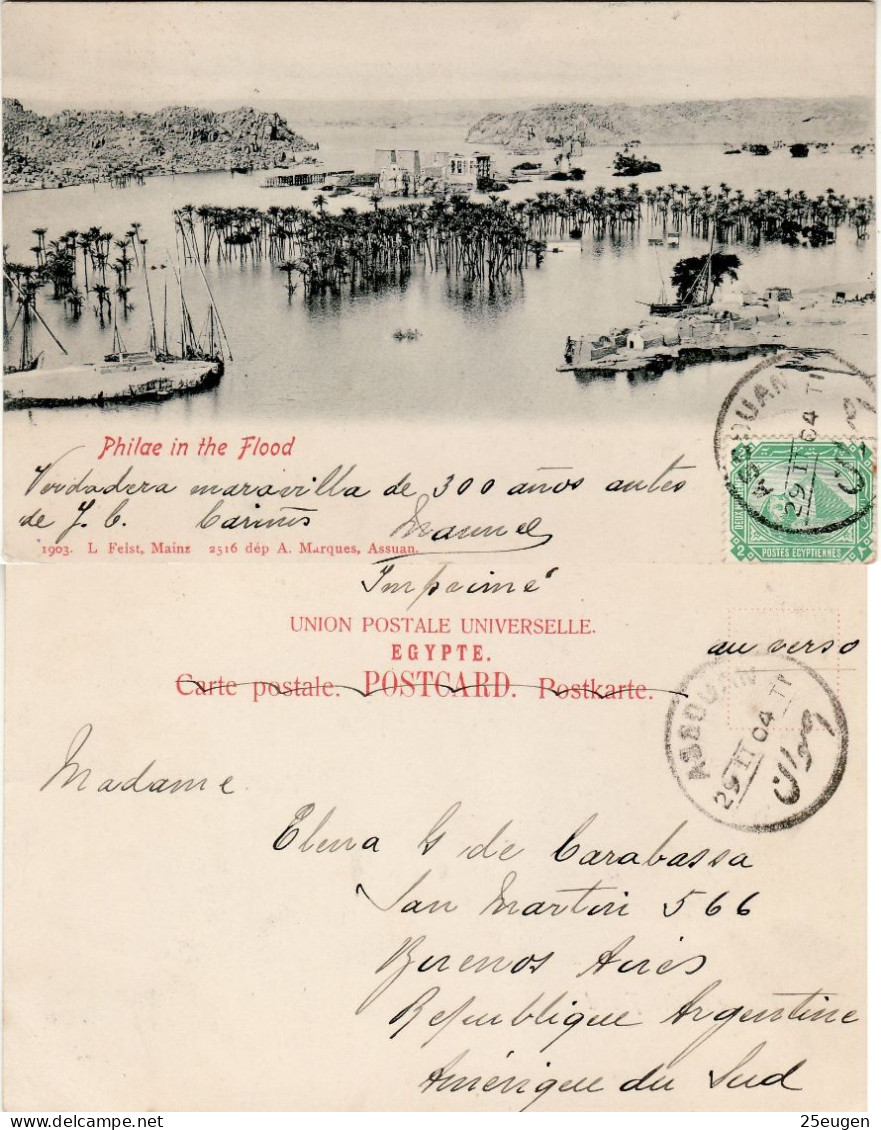 Philae in the Flood
Verdadera maravilla de 300 años antes
de J. C. Cariños Manuel
1903. L Felst, Mainz 2516 dép A. Marques, Assuan.
ASSOUAN
29 II 04 TI
اسوان
2 POSTES EGYPTIENNES ٢
Imprimé
UNION POSTALE UNIVERSELLE.
EGYPTE.
au verso
Carte postale. POSTCARD. Postkarte.
ASSOUAN
29 II 04 TI
اسوان
Madame
Elena G de Carabassa
San Martin 566
Buenos Aires
République Argentine
Amérique du Sud
delcampe.net
25eugen